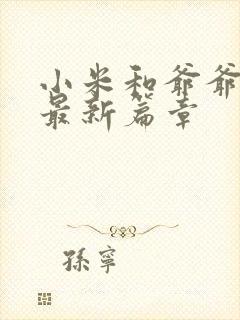 小米和爷爷
最新篇章
孫寧